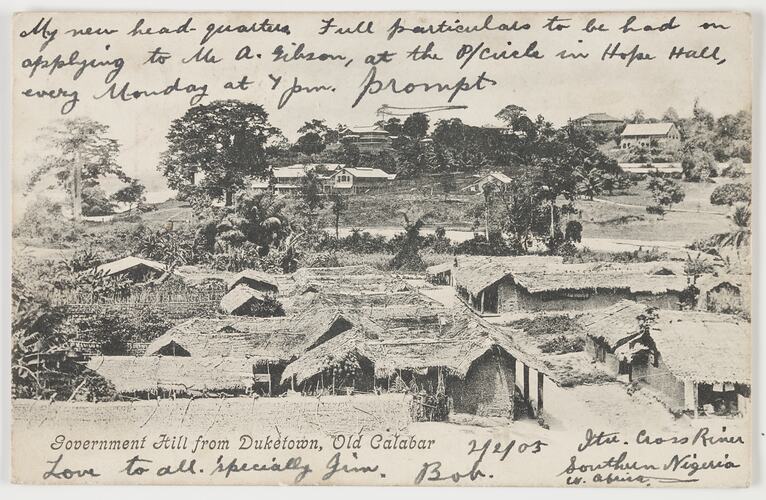 My new head-quarters Full particulars to be had on
applying to Mr A. Gibson, at the P/Circle in Hope Hall,
every Monday at 7 pm. prompt
Government Hill from Duketown, Old Calabar
2/2/05
Itu. Cross River
Southern Nigeria
W. Africa.
Love to all. 'specially Jim. Bob.